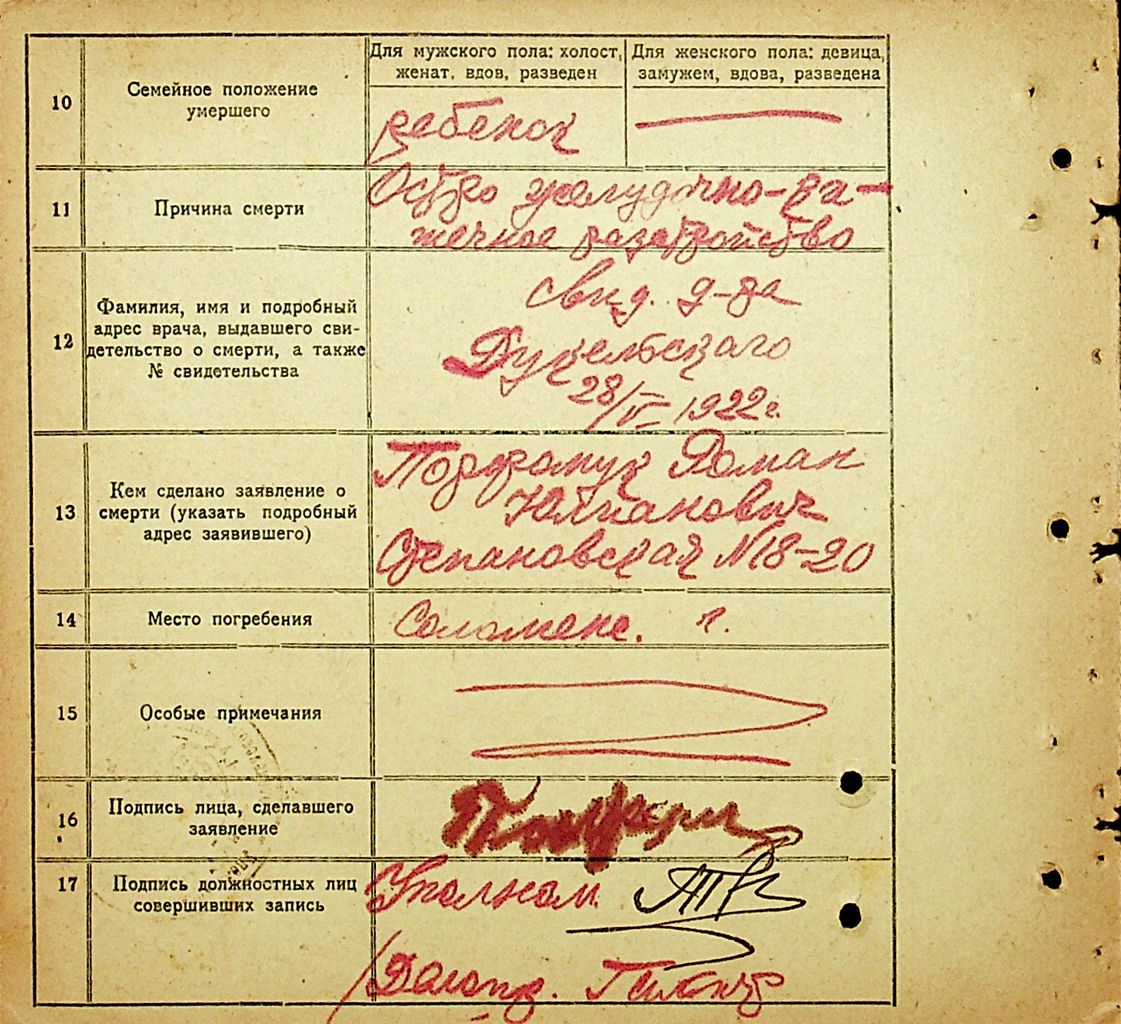 Для мужского пола: холост,
женат, вдов, разведен
Для женского пола: девица,
замужем, вдова, разведена
10
Семейное положение
умершего
ребенок
11
Причина смерти
Остро желудочно-
жечное расстройство
12
Фамилия, имя и подробный
адрес врача, выдавшего сви-
детельство о смерти, а также
№ свидетельства
Свид. д-ра
Дукельского
28/V 1922 г.
13
Кем сделано заявление о
смерти (указать подробный
адрес заявившего)
Роман
Степановская N 18-20
14
Место погребения
Соломенс.
15
Особые примечания
16
Подпись лица, сделавшего
заявление
17
Подпись должностных лиц
совершивших запись
Уполном.